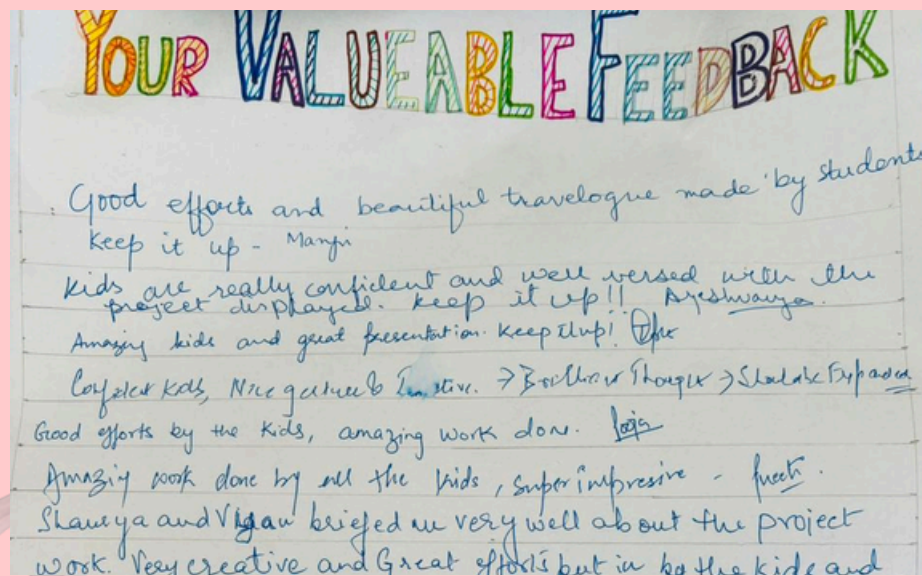 YOUR VALUEABLE FEEDBACK
Good efforts and beautiful travelogue made by students
Keep it up -
Kids are really confident and well versed with the
project displayed. Keep it up!!
Amazing kids and great presentation. Keep it up!
Confident Kids, Nice gesture & → Brilliant Thought → Should be Expanded
Good efforts by the kids, amazing work done. Pooja
Amazing work done by all the kids, super impresive - Preeti.
and briefed me very well about the project
work. Very creative and Great efforts but in by the kids and